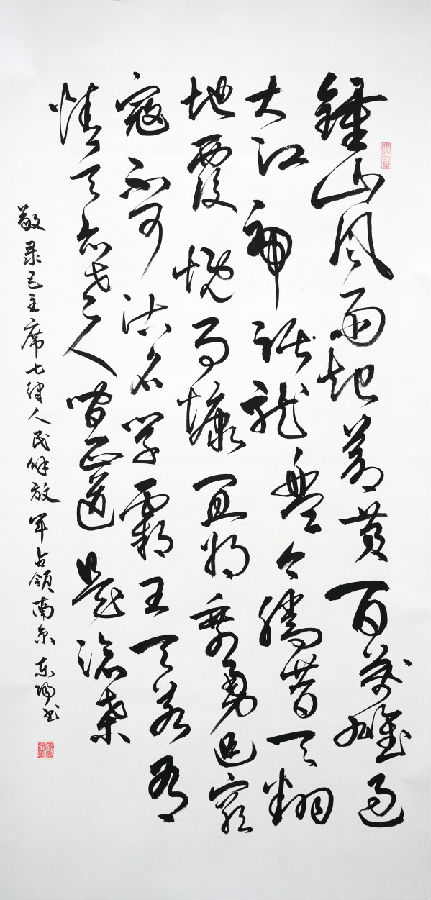 鍾山风雨起苍黄百万雄过
大江虎踞龙盘今胜昔天翻
地覆慨而慷宜将剩勇追穷
寇不可沽名学霸王天若有
情天亦老人间正道是沧桑
敬录毛主席七律人民解放军占领南京 东阳书